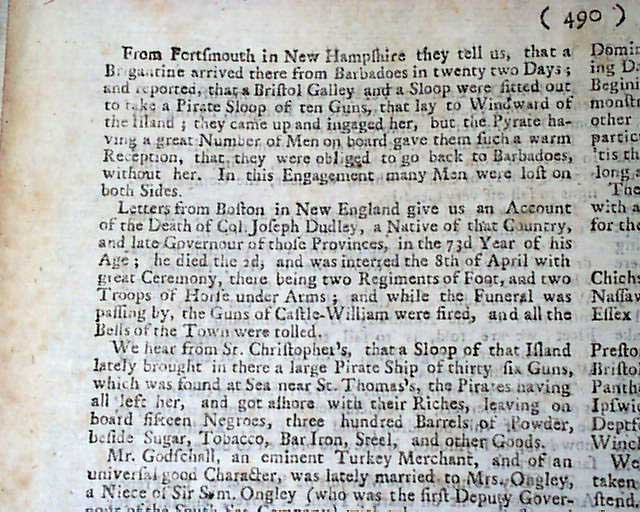 ( 490 )
From Portſmouth in New Hampſhire they tell us, that a
Brigantine arrived there from Barbadoes in twenty two Days;
and reported, that a Briſtol Galley and a Sloop were fitted out
to take a Pirate Sloop of ten Guns, that lay to Windward of
the Iſland; they came up and ingaged her, but the Pyrate ha-
ving a great Number of Men on board gave them ſuch a warm
Reception, that they were obliged to go back to Barbadoes,
without her. In this Engagement many Men were loſt on
both Sides.
Letters from Boſton in New England give us an Account
of the Death of Col. Joſeph Dudley, a Native of that Country,
and late Governour of thoſe Provinces, in the 73d Year of his
Age; he died the 2d, and was interred the 8th of April with
great Ceremony, there being two Regiments of Foot, and two
Troops of Horſe under Arms; and while the Funeral was
paſſing by, the Guns of Caſtle-William were fired, and all the
Bells of the Town were tolled.
We hear from St. Chriſtopher's, that a Sloop of that Iſland
lately brought in there a large Pirate Ship of thirty ſix Guns,
which was found at Sea near St. Thomas's, the Pirates having
all left her, and got aſhore with their Riches, leaving on
board fifteen Negroes, three hundred Barrels of Powder,
beſide Sugar, Tobacco, Bar Iron, Steel, and other Goods.
Mr. Godſchall, an eminent Turkey Merchant, and of an
univerſal good Character, was lately married to Mrs. Ongley,
a Niece of Sir Sam. Ongley (who was the firſt Deputy Gover-
nour of the South Sea Company)
Domin
ing Da
Begini
monſt
other
particu
'tis th
long a
The
with a
for the
Chicheſ
Naſſau
Eſſex
Preſto
Briſtol
Panth
Ipſwi
Deptf
Winch
We
taken
ſtend.